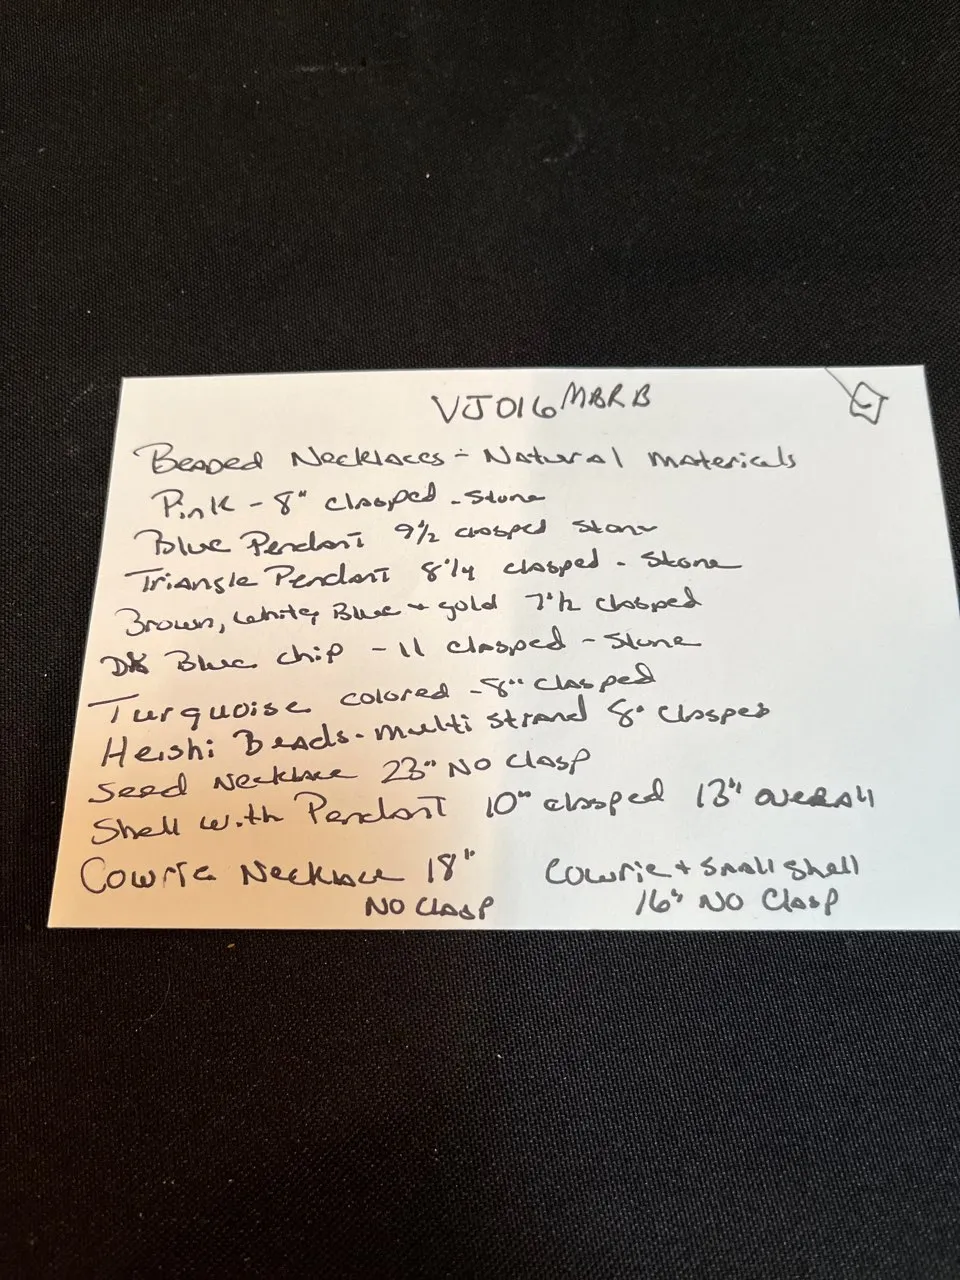 VJ016 MBRB
Beaded Necklaces - Natural Materials
Pink - 8" clasped - Stone
Blue Pendant 9½ clasped Stone
Triangle Pendant 8¼ clasped - Stone
Brown, White, Blue + gold 7½ clasped
DK Blue chip - 11 clasped - Stone
Turquoise colored - 8" clasped
Heishi Beads - multi strand 8" clasped
Seed Necklace 23" NO Clasp
Shell with Pendant 10" clasped 13" overall
Cowrie Necklace 18"
NO Clasp
Cowrie + Small Shell
16" NO Clasp